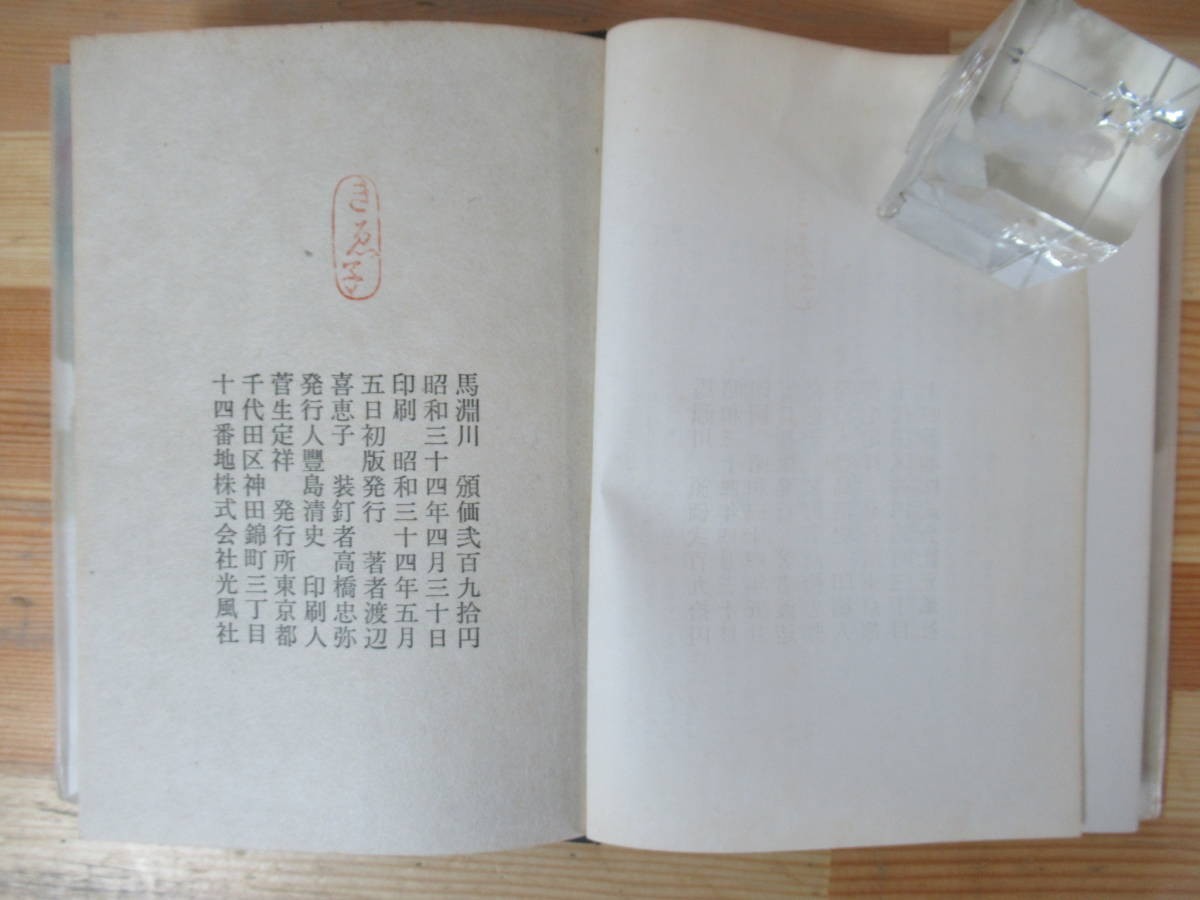 きゑ子
馬淵川　頒価弐百九拾円
昭和三十四年四月三十日
印刷　昭和三十四年五月
五日初版発行　著者渡辺
喜恵子　装釘者高橋忠弥
発行人豐島清史　印刷人
菅生定祥　発行所東京都
千代田区神田錦町三丁目
十四番地株式会社光風社